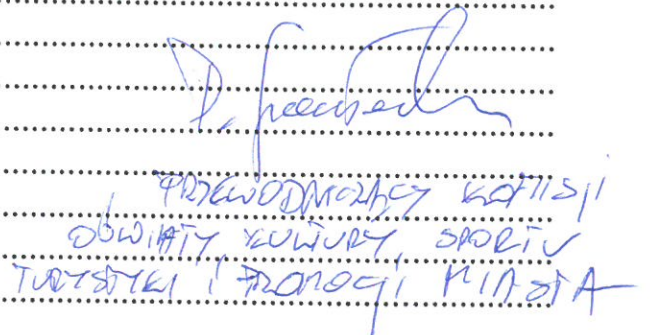 PRZEWODNICZĄCY KOMISJI
OŚWIATY, KULTURY, SPORTU
TURYSTYKI i PROMOCJI MIASTA